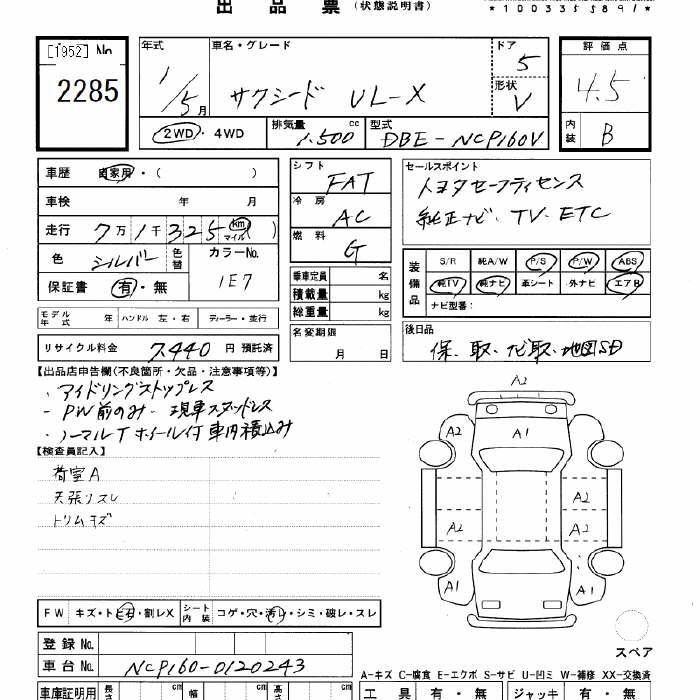 出品票 (状態説明書)
*1003355891*
[1952] No
2285
年式 1/5月
車名・グレード サクシード UL-X
ドア 5
形状 V
評価点 4.5
内装 B
2WD・4WD
排気量 1.500 cc
型式 DBE-NCP160V
車歴 自家用・( )
車検 年 月
走行 7万1千325 km マイル
色 シルバー 色替 カラーNo. 1E7
保証書 有・無
シフト FAT
冷房 AC
燃料 G
乗車定員 名
積載量 kg
総重量 kg
セールスポイント
トヨタセーフティセンス
純正ナビ・TV・ETC
装備品
S/R 純A/W P/S P/W ABS
純TV 純ナビ 革シート 外ナビ エアB
ナビ型番:
モデル年式 年 ハンドル 左・右 ディーラー・並行
名変期限 月 日
後日品
保、取、ナビ取、地図SD
リサイクル料金 7.440 円 預託済
【出品店申告欄(不良箇所・欠品・注意事項等)】
・アイドリングストップレス
- PW前のみ・現車スタッドレス
・ノーマルTホイール付車内積込み
【検査員記入】
荷室A
天張リスレ
トリムキズ
A2
A2
A1
A1
A2
A2
A2
A2
A1
A1
スペア
FW キズ・トビ石・割レX シート内装 コゲ・穴・汚レ・シミ・破レ・スレ
登録No.
車台No. NCP160-0120243
A-キズ C-腐食 E-エクボ S-サビ U-凹ミ W-補修 XX-交換済
車庫証明用 長さ cm 幅 cm 高さ cm
工具 有・無 ジャッキ 有・無